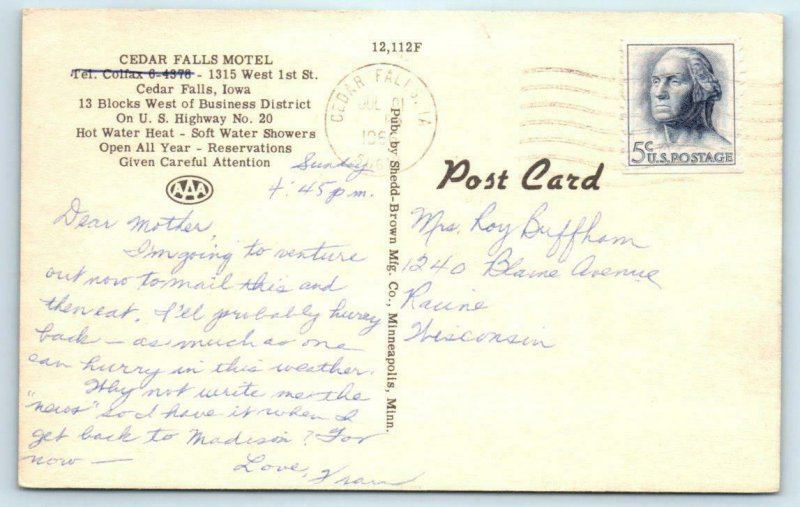 12,112F
CEDAR FALLS MOTEL
Tel. Colfax 6-4376 - 1315 West 1st St.
Cedar Falls, Iowa
13 Blocks West of Business District
On U. S. Highway No. 20
Hot Water Heat - Soft Water Showers
Open All Year - Reservations
Given Careful Attention
AAA
CEDAR FALLS, IA
5c
U.S. POSTAGE
Post Card
Pub. by Shedd-Brown Mfg. Co., Minneapolis, Minn.
Sunday
4:45 p.m.
Dear Mother,
I'm going to venture
out now to mail this and
then eat. I'll probably hurry
back - as much as one
can hurry in this weather.
Why not write me the
"news" so I have it when I
get back to Madison? For
now -
Love, Fran
Mrs. Roy Buffham
1240 Blaine Avenue
Racine
Wisconsin